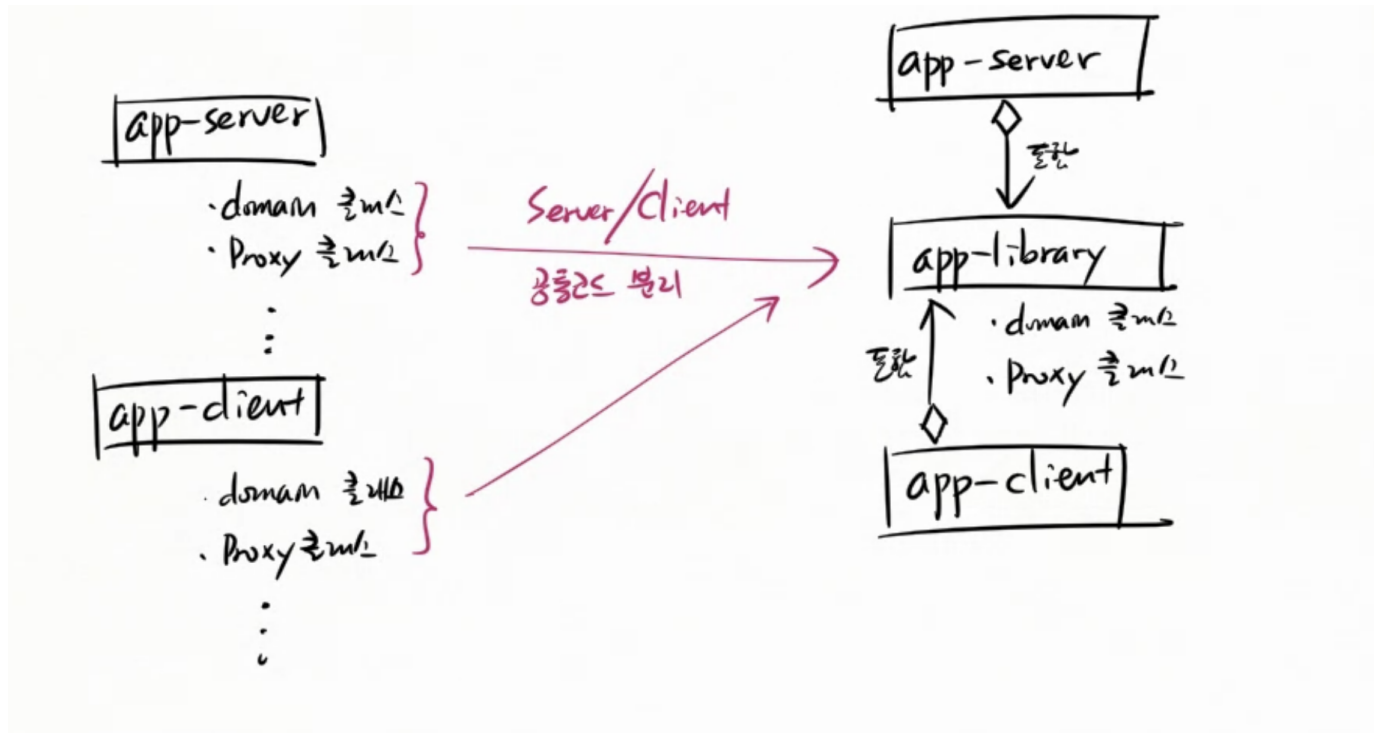 app-server
· domain 클래스
· Proxy 클래스
app-client
· domain 클래스
· Proxy 클래스
Server/Client
공통코드 분리
app-server
포함
app-library
· domain 클래스
· Proxy 클래스
포함
app-client